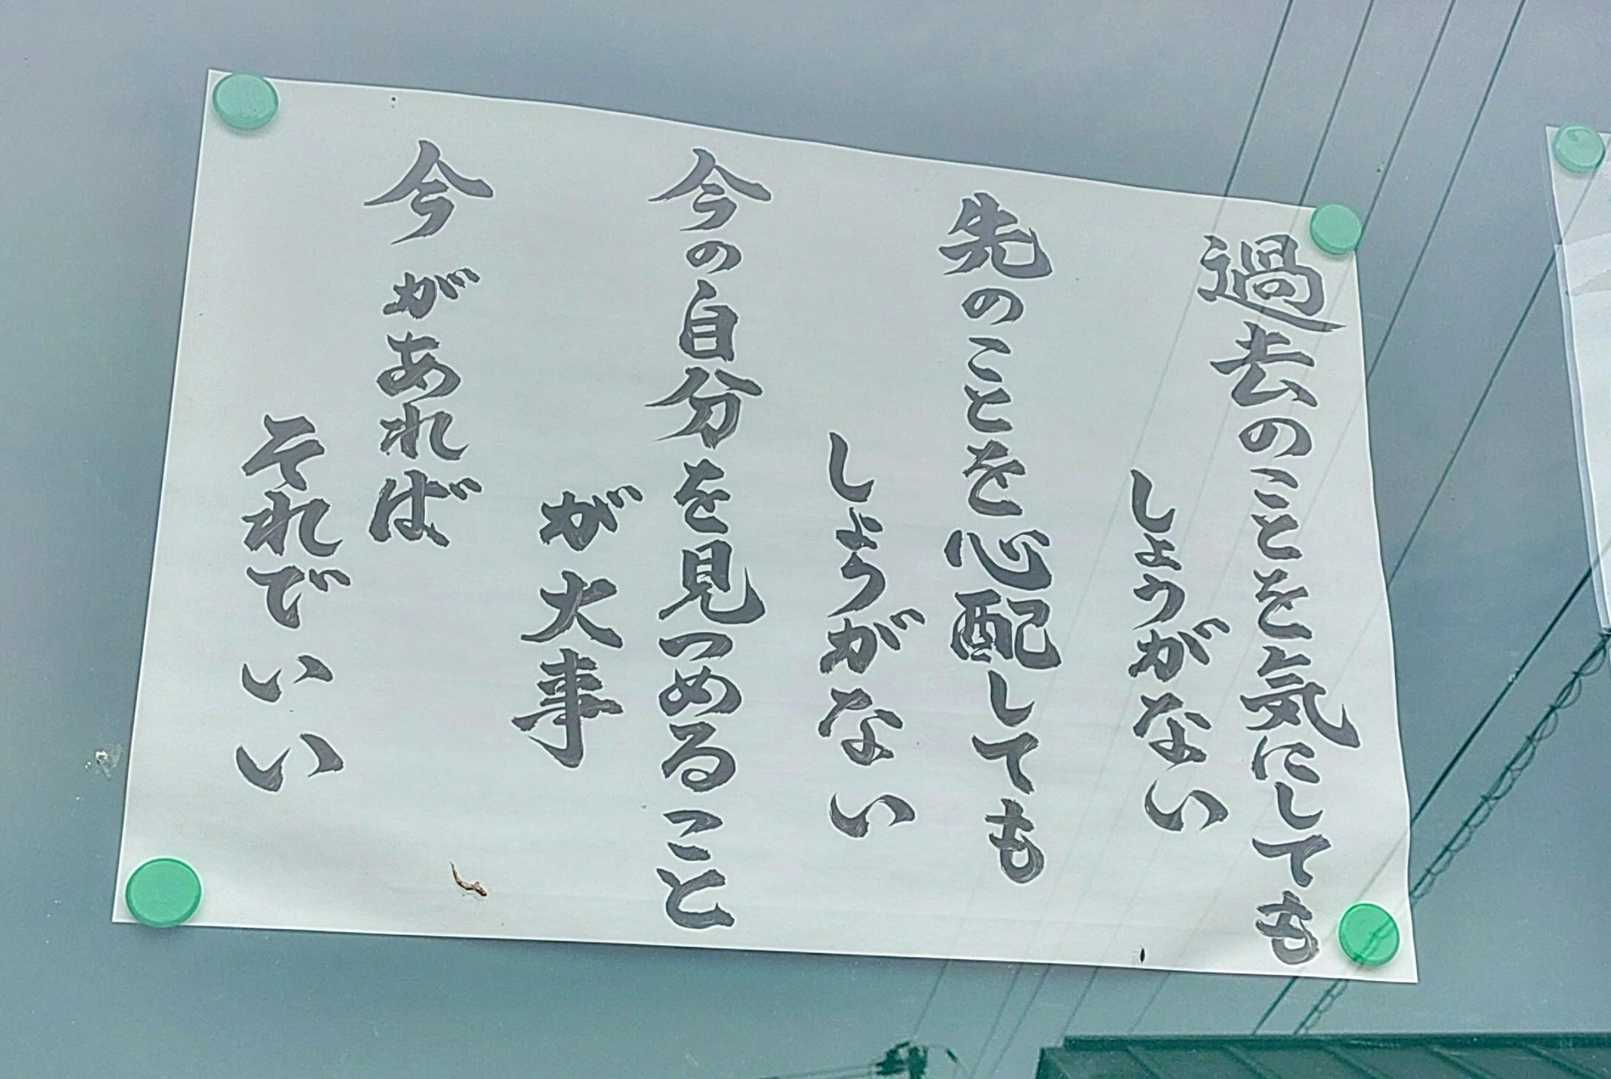 過去のことを気にしても
しょうがない
先のことを心配しても
しょうがない
今の自分を見つめること
が大事
今があれば
それでいい